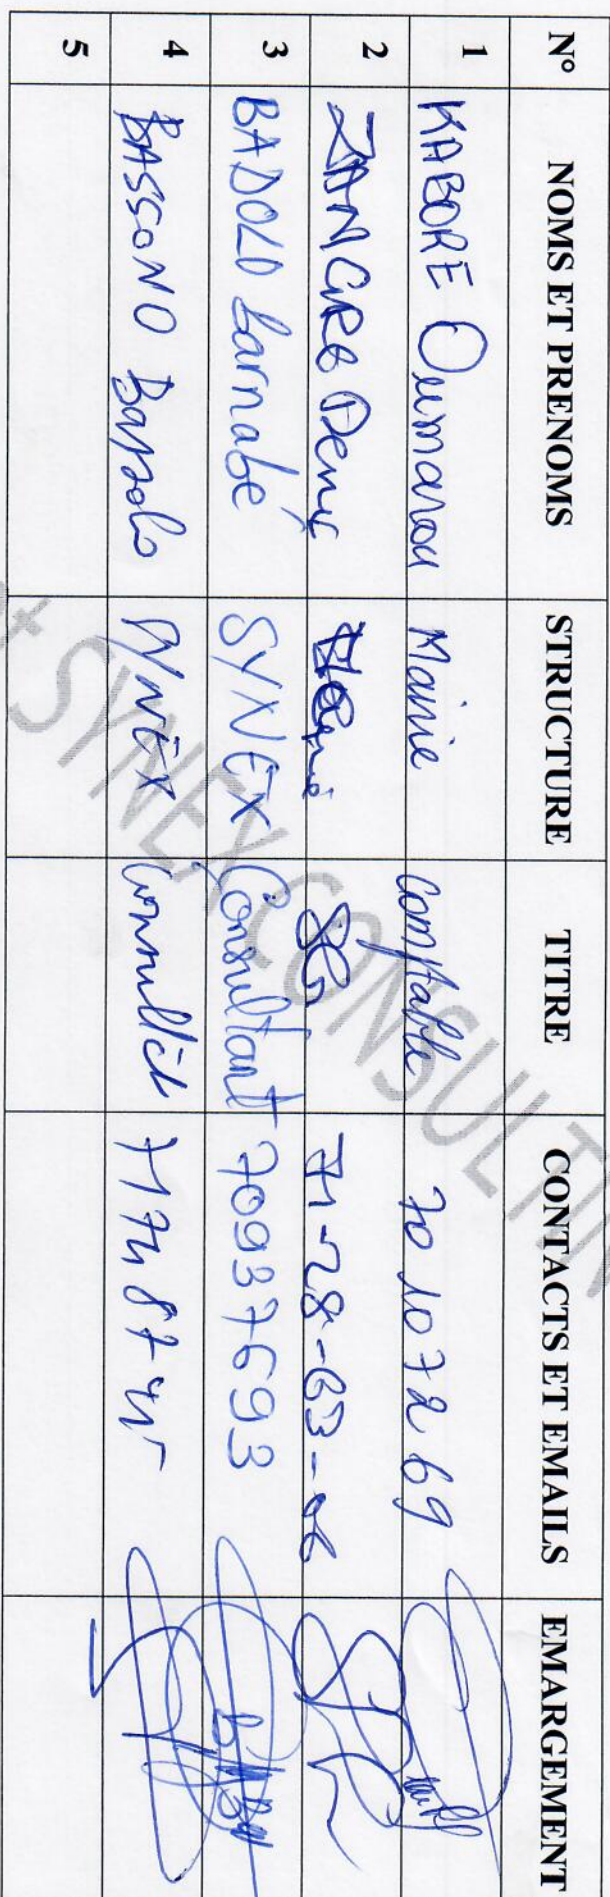 N° NOMS ET PRENOMS STRUCTURE TITRE CONTACTS ET EMAILS EMARGEMENT
1 KABORE Oumarou Mairie Comptable 70 10 72 69
2 ZANGRE Denis Mairie SG 71-28-63-06
3 BADOLO Barnabé SYNEX Consultant 70937693
4 BASSONO Bapolo SYNEX
5
SYNEX CONSULTIN